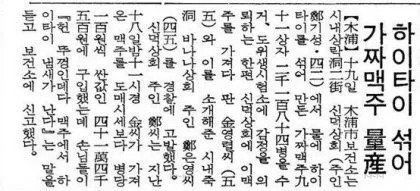 하이타이 섞어
가짜맥주 量産
【木浦】十九일 木浦市보건소는
시내상락洞二街 신덕상회(주인
鄭기성·四二)에서 물에 하이
타이를 섞어 만든 가짜맥주九
十一상자 二千一百八十四병을 수
거, 도위생시험소에 감정을 의
뢰하는 한편 신덕상회에 이맥
주를 가져다 판 金영렬씨(五
五)와 이를 소개해준 시내죽
洞 바나나상회 주인 鄭은영씨
(四五)를 경찰에 고발했다.
신덕상회 주인 鄭씨는 지난
十八일밤十一시경 金씨가 가져
온 맥주를 도매시세보다 병당
五百원씩 싼값인 四十一萬四千
五百원에 구입했는데 손님들이
『헌 뚜껑인데다 맥주에서 하
이타이 냄새가 난다』는 말을
듣고 보건소에 신고했다.